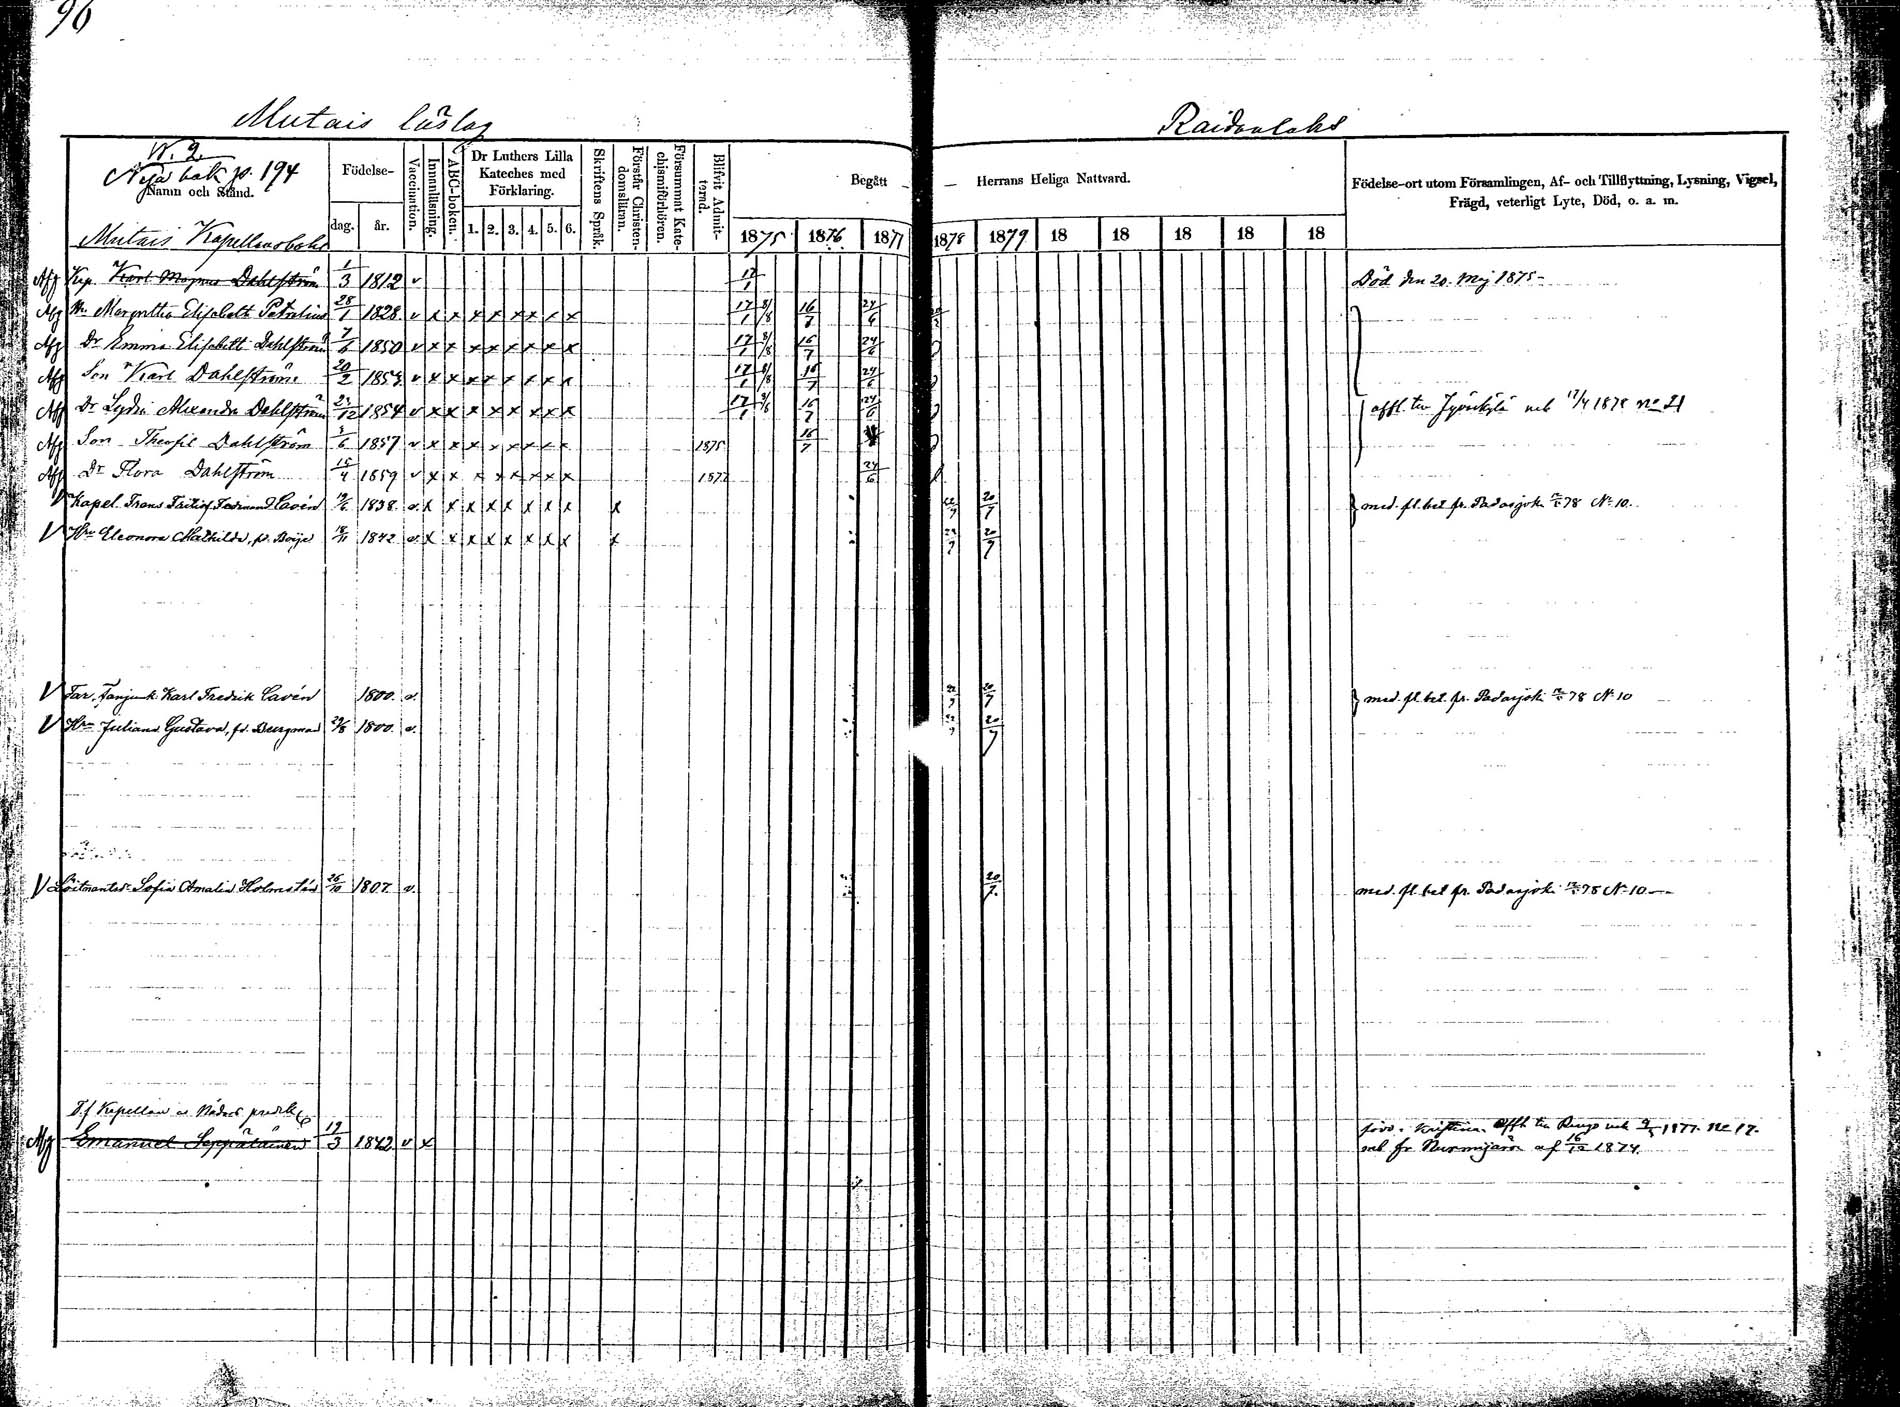 96
Mutais läslag
Raidanlaks
N. 2.
Nya bok p. 194
Namn och Stånd.
Födelse-
dag.
år.
Vaccination.
Innanläsning.
ABC-boken.
Dr Luthers Lilla Kateches med Förklaring.
1. 2. 3. 4. 5. 6.
Skriftens Språk.
Förstår Christendomsläran.
Försummat Katechismiförhören.
Blifvit Admitterad.
Begått — Herrans Heliga Nattvard.
1875 1876 1877 1878 1879 18 18 18 18 18
Födelse-ort utom Församlingen, Af- och Tillflyttning, Lysning, Vigsel, Frägd, veterligt Lyte, Död, o. a. m.
Mutais Kapellansbohl
Afg Kap. Karl Magnus Dahlström 1/3 1812 v 17/1 Död den 20. Maj 1875
Afg Margretha Elisabeth Petralius 28/1 1828 v x x x x x x x x 17/1 8/8 16/7 24/6
Afg Dr Emma Elisabeth Dahlström 7/6 1850 v x x x x x x x x 17/1 8/8 16/7 24/6
Afg Son Karl Dahlström 20/2 1853 v x x x x x x x x 17/1 8/8 16/7 24/6
Afg Dr Lydia Alexandra Dahlström 1854 v x x x x x x x x 17/1 16/7 24/6 affl. till Jyväskylä 17/4 1878 no 21
Afg Son Theofil Dahlström 1857 v x x x x x x x x 1875 16/7
Afg Dr Flora Dahlström 15/4 1859 v x x x x x x x x 1877 24/6
V Kapel. Frans Fritiof Ferdinand Cavén 1838. v. x x x x x x x x x 20/7 med fl. bet. fr. Padasjoki 78 No 10.
V Hru Eleonora Mathilda, fd. Boije 18/11 1842 v. x x x x x x x x x 20/7
V Far, Fanjunk. Karl Fredrik Cavén 1800. v. 20/7 med fl. bet. fr. Padasjoki 78 No 10
V Hru Juliana Gustava, fd. Bergman 1800. v. 20/7
V Löitnantsd. Sofia Amalia Holmstén 26/10 1807. v. 20/7. med fl. bet. fr. Padasjoki 78 No 10
T.f Kapellan
Afg Emanuel Seppäläinen 19/3 1842 v x
1877. no 17.
fr Nurmijärvi af 16/12 1874.